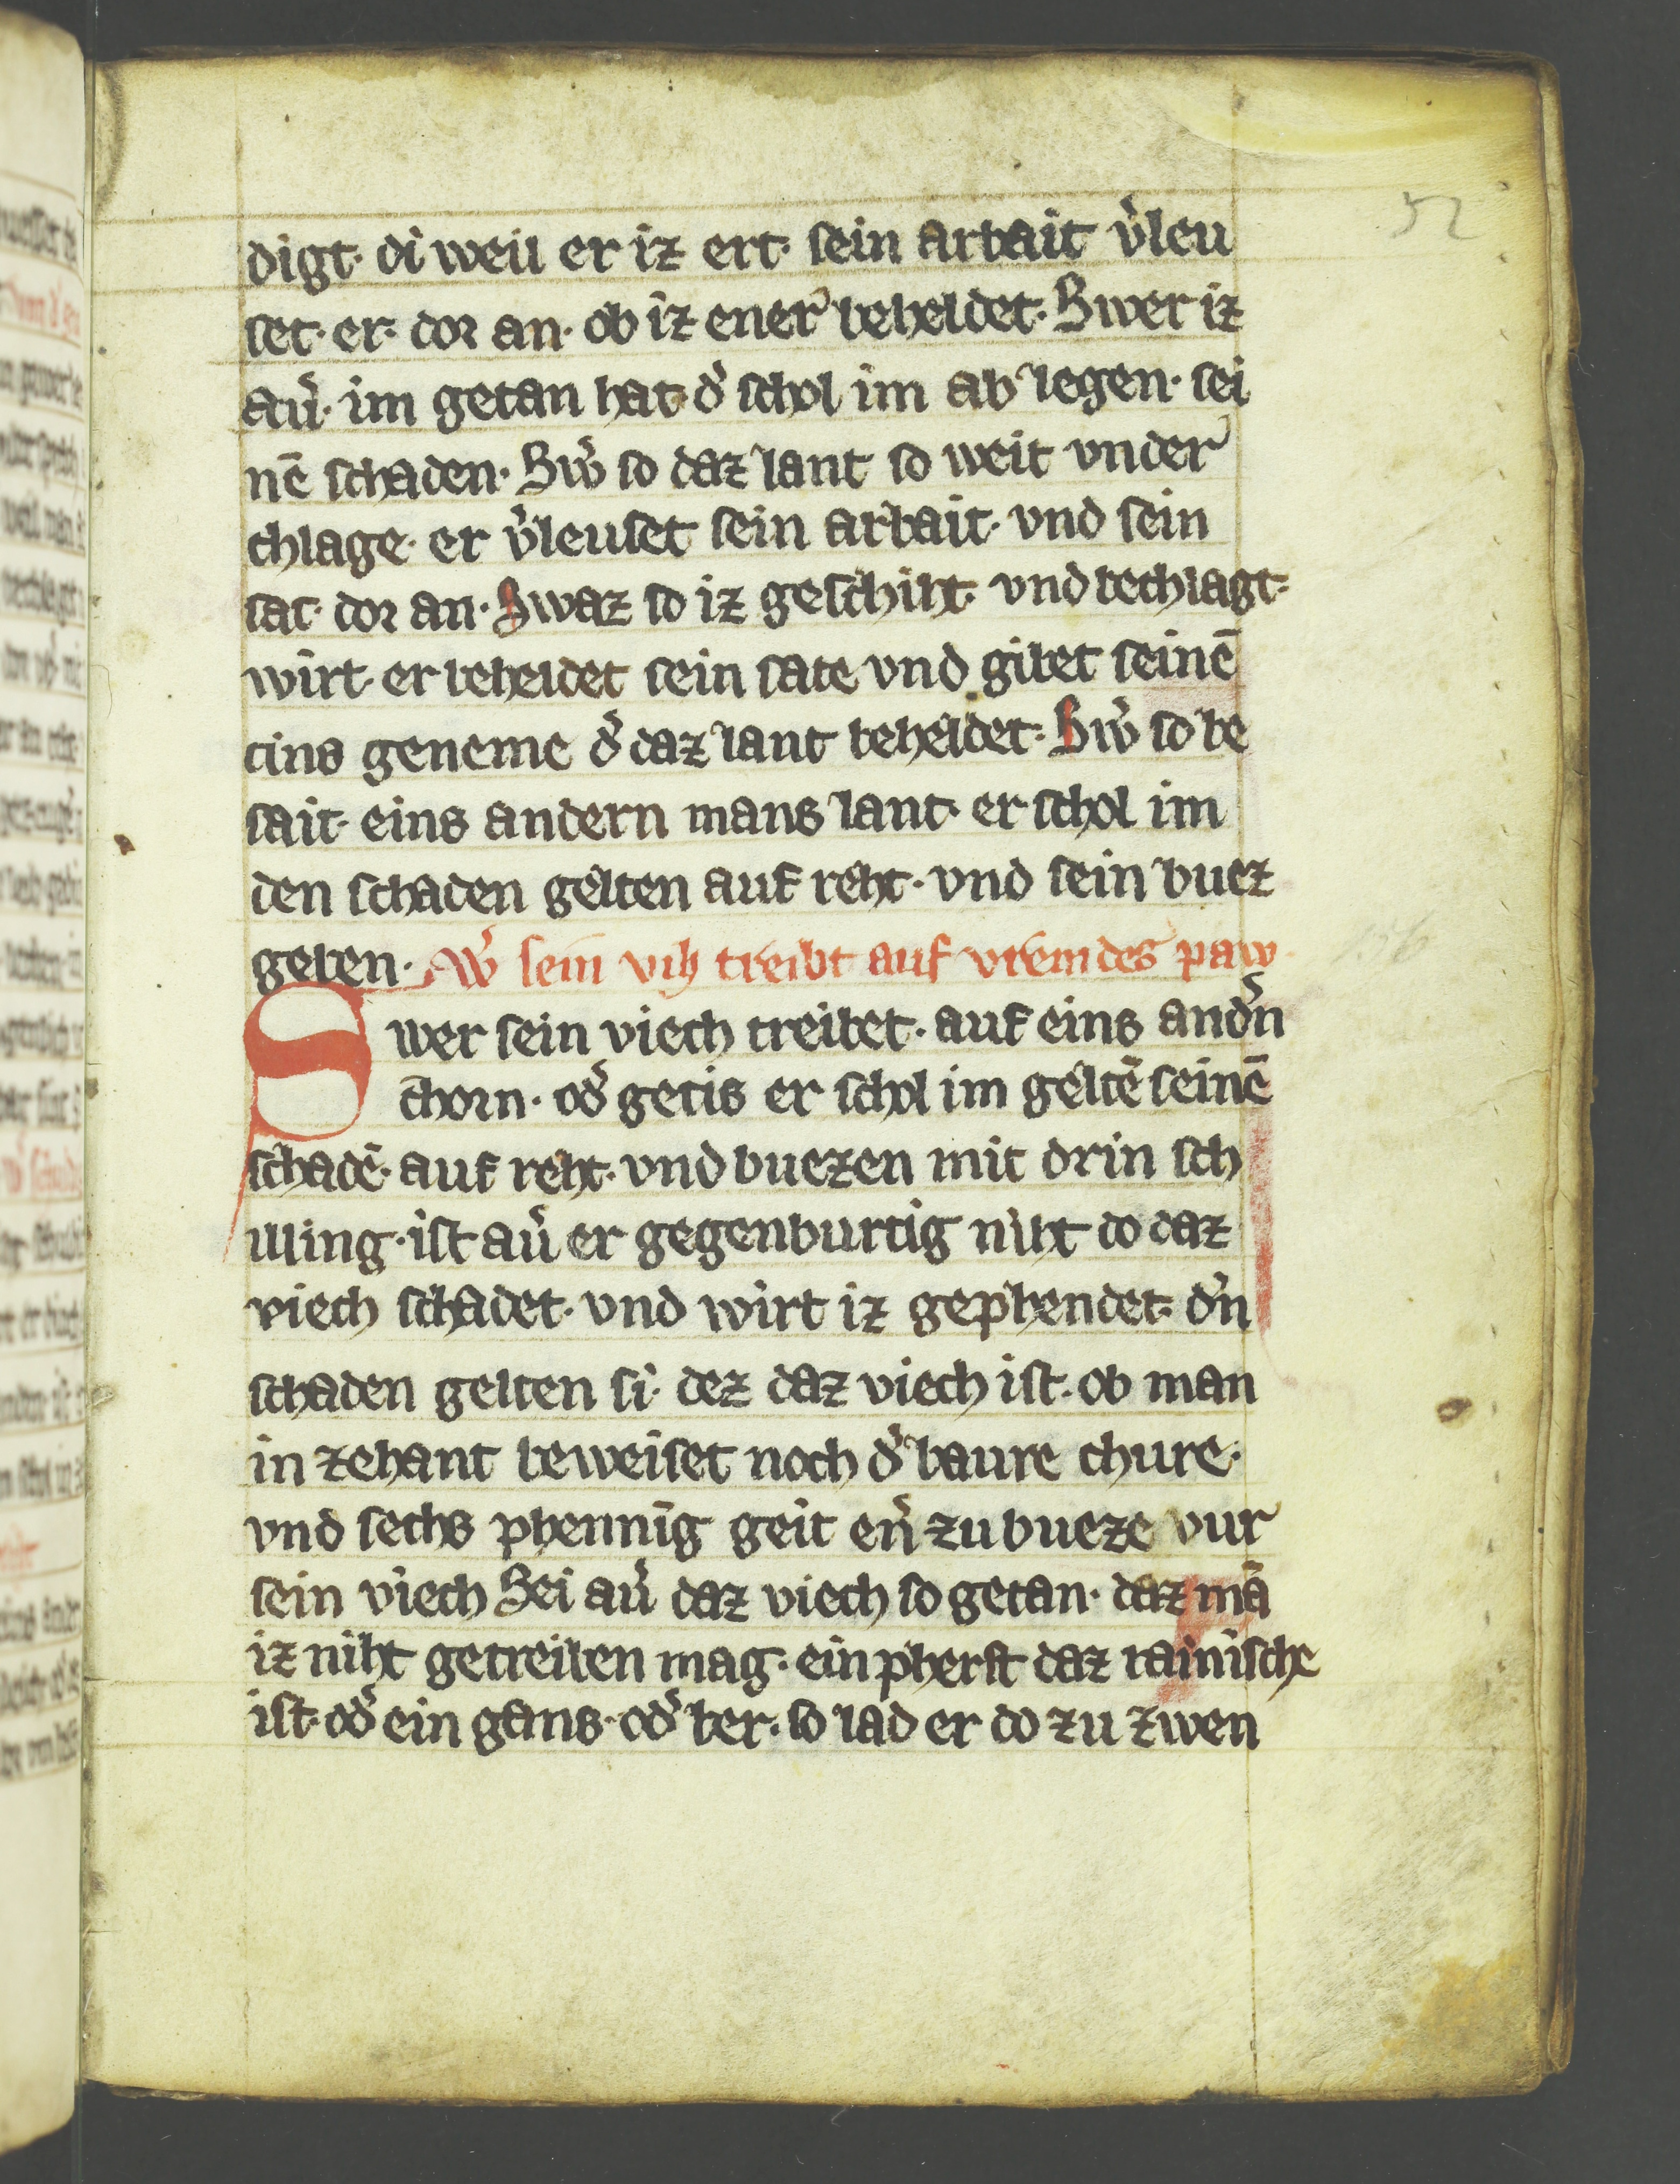 52
digt· di weil er iz ert· sein arbait v̾leu
set· er· dor an· ob iz ener beheldet· Swer iz
au̾· im getan hat· d̾ schol im ab legen· sei
nē schaden· Sw̾ so daz lant so weit vnder
chlage· er v̾leuset sein arbait· vnd sein
sat· dor an· Swaz so iz geschiht· vnd bechlagt·
wirt· er beheldet sein sate vnd gibet seinē
cins geneme d̾ daz lant beheldet· Sw̾ so be
sait· eins andern mans lant· er schol im
den schaden gelten auf reht· vnd sein buez
geben· W̾ sein vih treibt auf vremdes paw
Swer sein viech treibet· auf eins and̾n
chorn· od̾ getis er schol im geltē seinē
schadē· auf reht· vnd buezen mit drin sch
illing· ist au̾ er gegenburtig niht do daz
viech schadet· vnd wirt iz gephendet· d̾n
schaden gelten si· dez daz viech ist· ob man
in zehant beweiset noch d̾ baure chure·
vnd sechs phennīg geit en̾ zu bueze vur
sein viech Sei au̾ daz viech so getan· daz mā
iz niht getreiben mag· ein pherft daz rainische
ist· od̾ ein gans· od̾ ber· so lad er do zu zwen